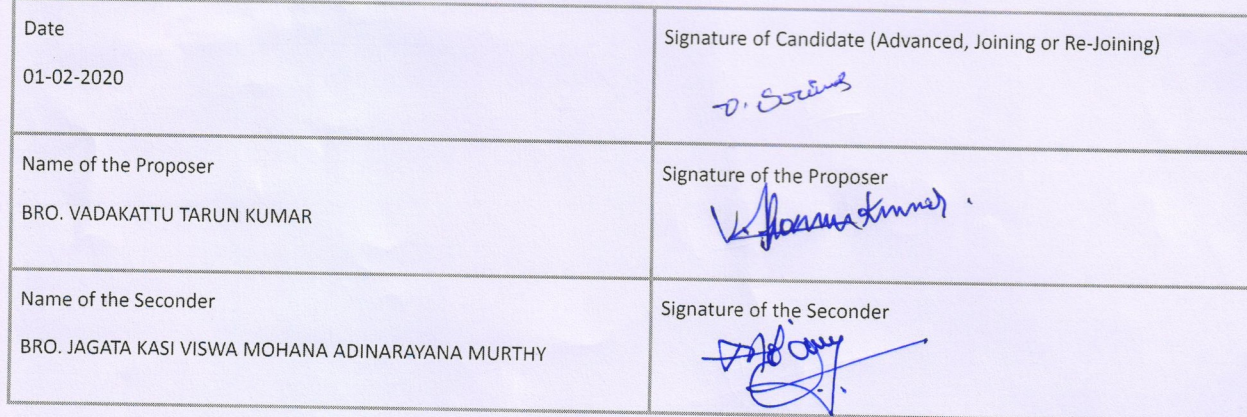 Date
01-02-2020
Signature of Candidate (Advanced, Joining or Re-Joining)
Name of the Proposer
BRO. VADAKATTU TARUN KUMAR
Signature of the Proposer
Name of the Seconder
BRO. JAGATA KASI VISWA MOHANA ADINARAYANA MURTHY
Signature of the Seconder